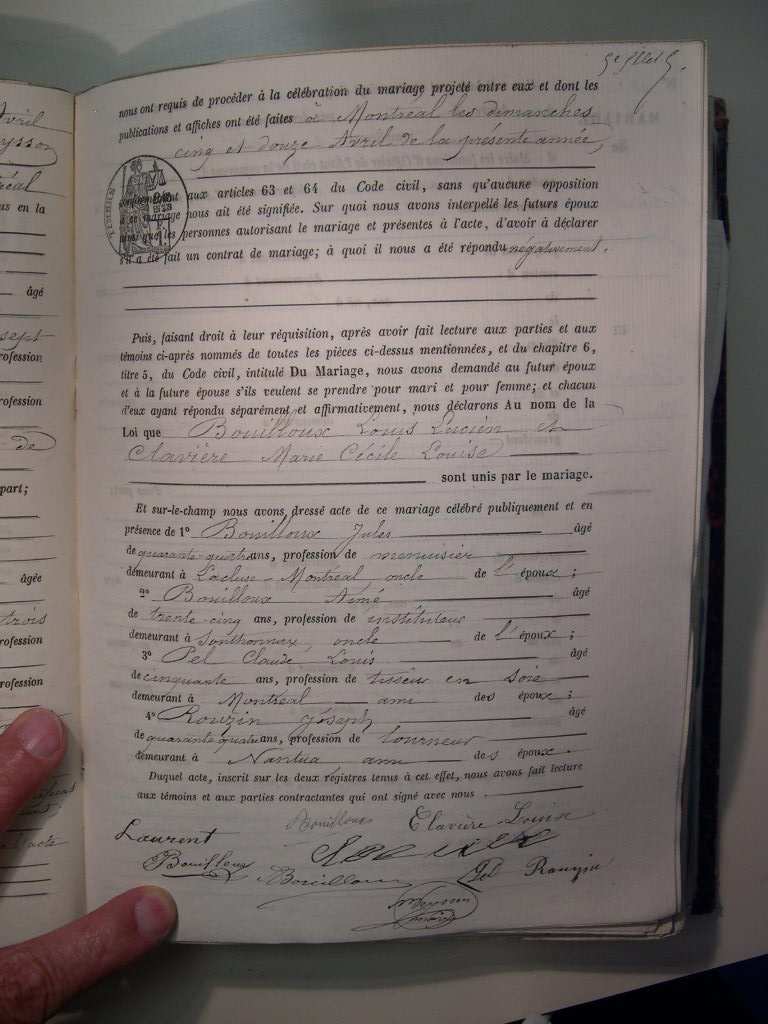 Avril
yssons
tréal
us en la
âgé
sept
rofession
rofession
de
part;
âgée
trois
rofession
rofession
acte
5e flet 5.
nous ont requis de procéder à la célébration du mariage projeté entre eux et dont les
publications et affiches ont été faites à Montréal les dimanches
cinq et douze Avril de la présente année,
conformément aux articles 63 et 64 du Code civil, sans qu'aucune opposition
à ce mariage nous ait été signifiée. Sur quoi nous avons interpellé les futurs époux
ainsi que les personnes autorisant le mariage et présentes à l'acte, d'avoir à déclarer
s'il a été fait un contrat de mariage; à quoi il nous a été répondu négativement.
Puis, faisant droit à leur réquisition, après avoir fait lecture aux parties et aux
témoins ci-après nommés de toutes les pièces ci-dessus mentionnées, et du chapitre 6,
titre 5, du Code civil, intitulé Du Mariage, nous avons demandé au futur époux
et à la future épouse s'ils veulent se prendre pour mari et pour femme; et chacun
d'eux ayant répondu séparément et affirmativement, nous déclarons Au nom de la
Loi que Bouilloux Louis Lucien et
Clavière Marie Cécile Louise
sont unis par le mariage.
Et sur-le-champ nous avons dressé acte de ce mariage célébré publiquement et en
présence de 1º Bouilloux Jules âgé
de quarante-quatre ans, profession de menuisier
demeurant à Lacluse-Montréal, oncle de l'époux;
2º Bouilloux Aimé âgé
de trente-cinq ans, profession de instituteur
demeurant à Sonthonnax, oncle de l'époux;
3º Pel Claude Louis âgé
de cinquante ans, profession de tisseur en soie
demeurant à Montréal ami des époux;
4º Rouzin Joseph âgé
de quarante quatre ans, profession de tourneur
demeurant à Nantua ami des époux.
Duquel acte, inscrit sur les deux régistres tenus à cet effet, nous avons fait lecture
aux témoins et aux parties contractantes qui ont signé avec nous
Laurent Bouilloux Clavière Louise
Bouilloux
Bouilloux Pel Rouzin